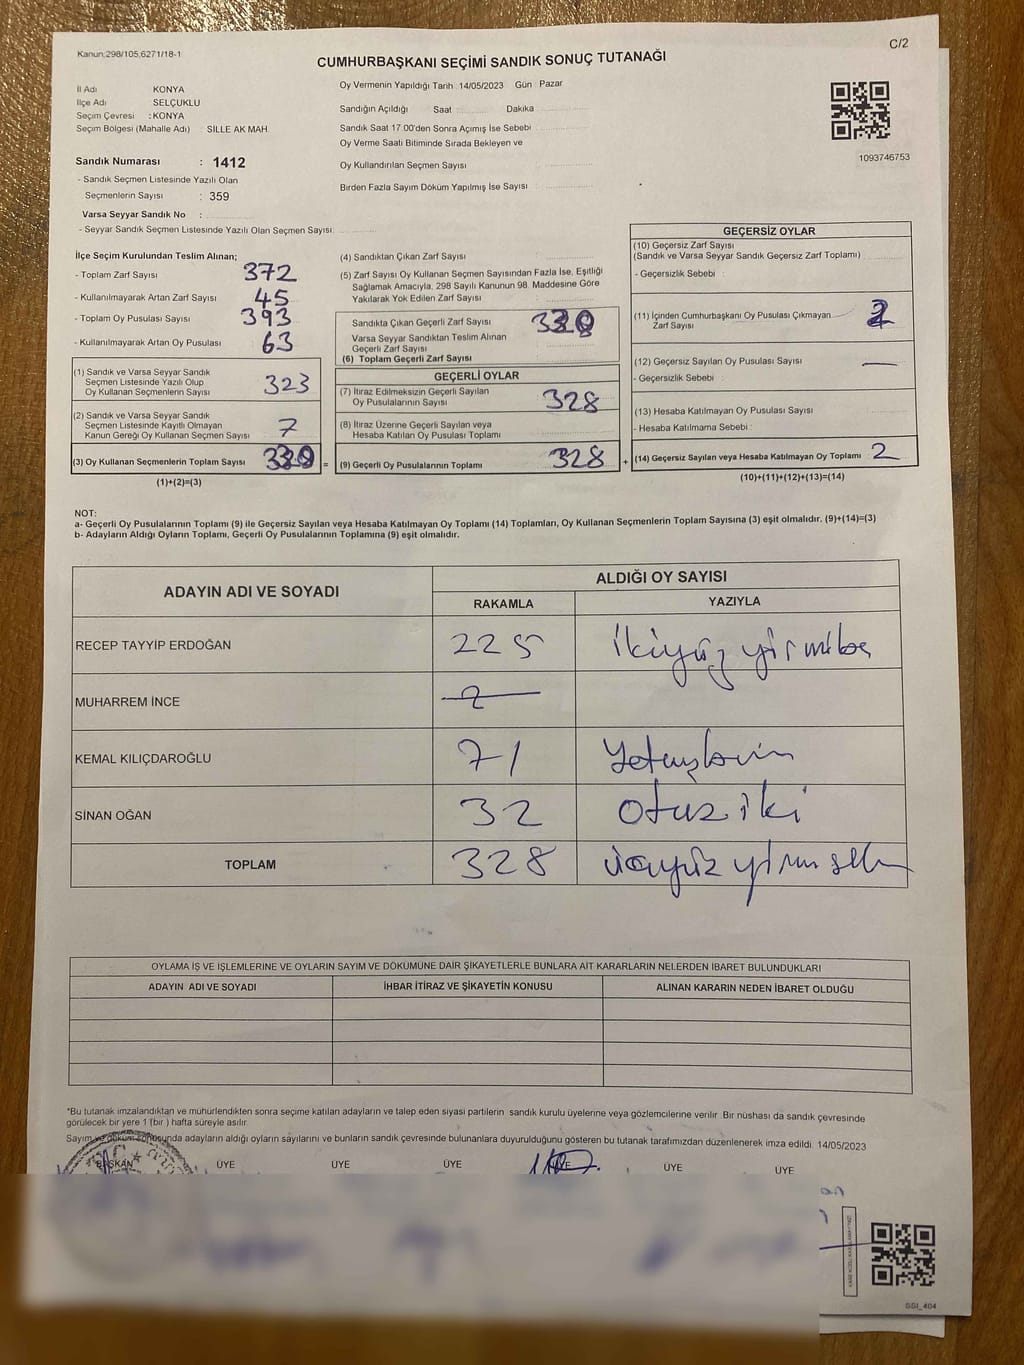 Kanun:298/105,6271/18-1
C/2
CUMHURBAŞKANI SEÇİMİ SANDIK SONUÇ TUTANAĞI
İl Adı KONYA
İlçe Adı SELÇUKLU
Seçim Çevresi : KONYA
Seçim Bölgesi (Mahalle Adı) : SİLLE AK MAH.
Sandık Numarası : 1412
- Sandık Seçmen Listesinde Yazılı Olan
Seçmenlerin Sayısı : 359
Varsa Seyyar Sandık No :
- Seyyar Sandık Seçmen Listesinde Yazılı Olan Seçmen Sayısı:
Oy Vermenin Yapıldığı Tarih : 14/05/2023 Gün : Pazar
Sandığın Açıldığı Saat Dakika
Sandık Saat 17.00'den Sonra Açımış İse Sebebi
Oy Verme Saati Bitiminde Sırada Bekleyen ve
Oy Kullandırılan Seçmen Sayısı
Birden Fazla Sayım Döküm Yapılmış İse Sayısı
1093746753
İlçe Seçim Kurulundan Teslim Alınan;
- Toplam Zarf Sayısı 372
- Kullanılmayarak Artan Zarf Sayısı 45
- Toplam Oy Pusulası Sayısı 393
- Kullanılmayarak Artan Oy Pusulası 63
(1) Sandık ve Varsa Seyyar Sandık
Seçmen Listesinde Yazılı Olup
Oy Kullanan Seçmenlerin Sayısı 323
(2) Sandık ve Varsa Seyyar Sandık
Seçmen Listesinde Kayıtlı Olmayan
Kanun Gereği Oy Kullanan Seçmen Sayısı 7
(3) Oy Kullanan Seçmenlerin Toplam Sayısı =
(1)+(2)=(3)
(4) Sandıktan Çıkan Zarf Sayısı
(5) Zarf Sayısı Oy Kullanan Seçmen Sayısından Fazla İse, Eşitliği
Sağlamak Amacıyla, 298 Sayılı Kanunun 98. Maddesine Göre
Yakılarak Yok Edilen Zarf Sayısı
Sandıkta Çıkan Geçerli Zarf Sayısı
Varsa Seyyar Sandıktan Teslim Alınan
Geçerli Zarf Sayısı
(6) Toplam Geçerli Zarf Sayısı
GEÇERLİ OYLAR
(7) İtiraz Edilmeksizin Geçerli Sayılan
Oy Pusulalarının Sayısı 328
(8) İtiraz Üzerine Geçerli Sayılan veya
Hesaba Katılan Oy Pusulası Toplamı
(9) Geçerli Oy Pusulalarının Toplamı 328 +
GEÇERSİZ OYLAR
(10) Geçersiz Zarf Sayısı
(Sandık ve Varsa Seyyar Sandık Geçersiz Zarf Toplamı)
- Geçersizlik Sebebi :
(11) İçinden Cumhurbaşkanı Oy Pusulası Çıkmayan
Zarf Sayısı 2
(12) Geçersiz Sayılan Oy Pusulası Sayısı —
- Geçersizlik Sebebi :
(13) Hesaba Katılmayan Oy Pusulası Sayısı
- Hesaba Katılmama Sebebi :
(14) Geçersiz Sayılan veya Hesaba Katılmayan Oy Toplamı 2
(10)+(11)+(12)+(13)=(14)
NOT:
a- Geçerli Oy Pusulalarının Toplamı (9) ile Geçersiz Sayılan veya Hesaba Katılmayan Oy Toplamı (14) Toplamları, Oy Kullanan Seçmenlerin Toplam Sayısına (3) eşit olmalıdır. (9)+(14)=(3)
b- Adayların Aldığı Oyların Toplamı, Geçerli Oy Pusulalarının Toplamına (9) eşit olmalıdır.
ADAYIN ADI VE SOYADI ALDIĞI OY SAYISI
RAKAMLA YAZIYLA
RECEP TAYYİP ERDOĞAN 225 ikiyüz yirmibeş
MUHARREM İNCE
KEMAL KILIÇDAROĞLU 71 Yetmişbir
SİNAN OĞAN 32 otuz iki
TOPLAM 328 üçyüz yirmi sekiz
OYLAMA İŞ VE İŞLEMLERİNE VE OYLARIN SAYIM VE DÖKÜMÜNE DAİR ŞİKAYETLERLE BUNLARA AİT KARARLARIN NELERDEN İBARET BULUNDUKLARI
ADAYIN ADI VE SOYADI İHBAR İTİRAZ VE ŞİKAYETİN KONUSU ALINAN KARARIN NEDEN İBARET OLDUĞU
*Bu tutanak imzalandıktan ve mühürlendikten sonra seçime katılan adayların ve talep eden siyasi partilerin sandık kurulu üyelerine veya gözlemcilerine verilir. Bir nüshası da sandık çevresinde
görülecek bir yere 1 (bir) hafta süreyle asılır.
Sayım ve döküm sonucunda adayların aldığı oyların sayılarını ve bunların sandık çevresinde bulunanlara duyurulduğunu gösteren bu tutanak tarafımızdan düzenlenerek imza edildi. 14/05/2023
BAŞKAN ÜYE ÜYE ÜYE ÜYE ÜYE ÜYE
GSI_404